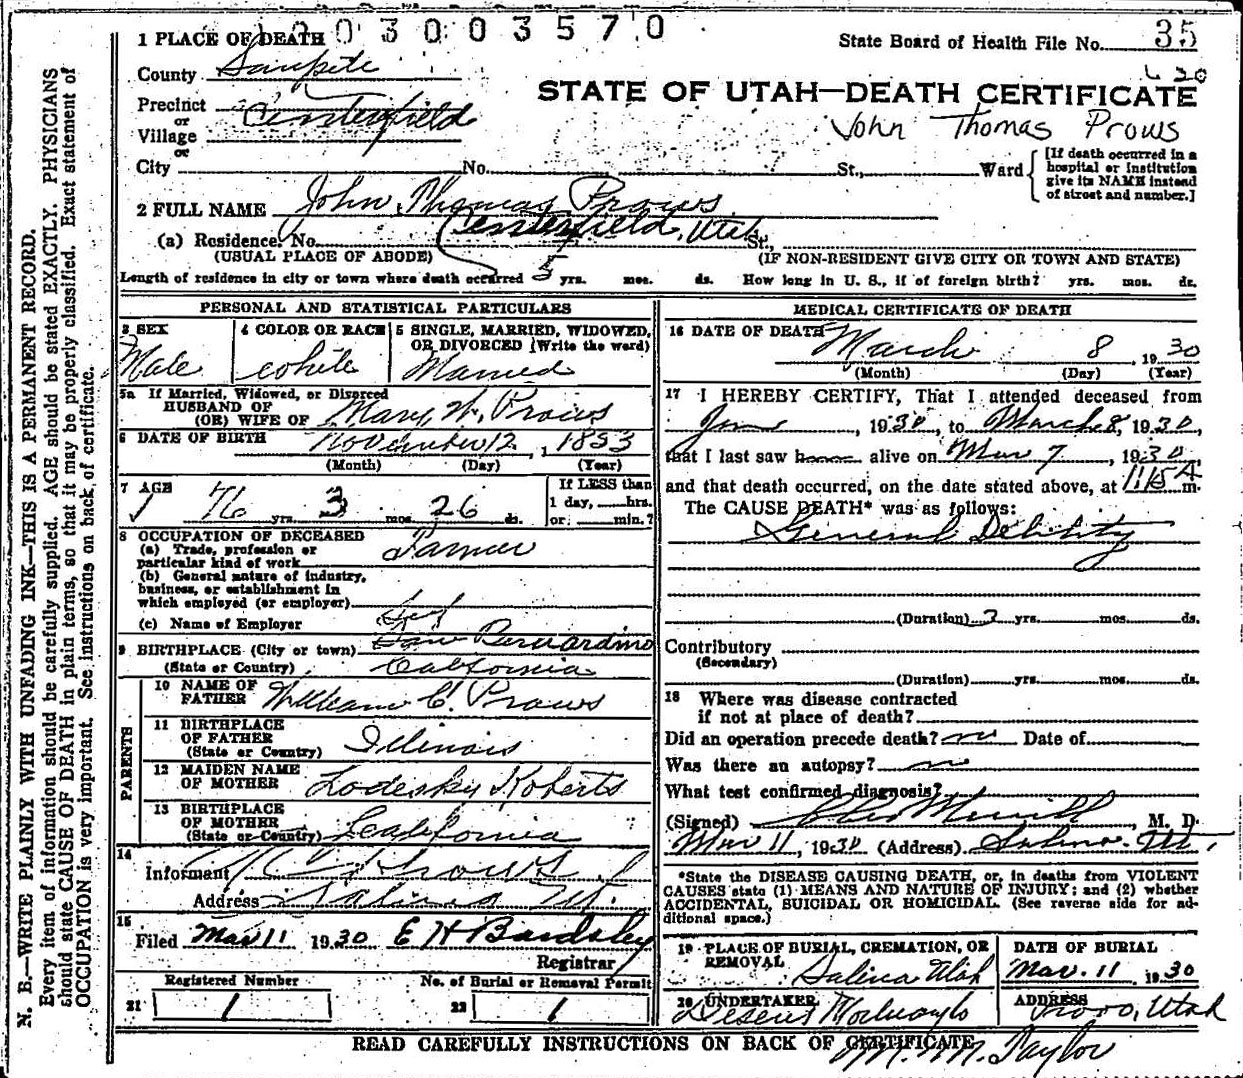 0 0 3 0 0 3 5 7 0
1 PLACE OF DEATH
State Board of Health File No. 35
County Sanpete
STATE OF UTAH—DEATH CERTIFICATE
Precinct
or
Village
Centerfield
John Thomas Prows
or
City No. St., Ward
[If death occurred in a
hospital or institution
give its NAME instead
of street and number.]
2 FULL NAME John Thomas Prows
(a) Residence. No. Centerfield, Utah St.,
(USUAL PLACE OF ABODE) (IF NON-RESIDENT GIVE CITY OR TOWN AND STATE)
Length of residence in city or town where death occurred 5 yrs. mos. ds. How long in U. S., if of foreign birth? yrs. mos. ds.
PERSONAL AND STATISTICAL PARTICULARS
3 SEX
Male
4 COLOR OR RACE
white
5 SINGLE, MARRIED, WIDOWED,
OR DIVORCED (Write the word)
Married
5a If Married, Widowed, or Divorced
HUSBAND OF
(OR) WIFE OF Mary W. Prows
6 DATE OF BIRTH November 12, 1853
(Month) (Day) (Year)
7 AGE
76 yrs. 3 mos. 26 ds.
If LESS than
1 day, hrs.
or min.?
8 OCCUPATION OF DECEASED
(a) Trade, profession or
particular kind of work Farmer
(b) General nature of industry,
business, or establishment in
which employed (or employer)
(c) Name of Employer
9 BIRTHPLACE (City or town) San Bernardino
(State or Country) California
PARENTS
10 NAME OF
FATHER William C. Prows
11 BIRTHPLACE
OF FATHER
(State or Country) Illinois
12 MAIDEN NAME
OF MOTHER Lodesky Roberts
13 BIRTHPLACE
OF MOTHER
(State or Country) California
14
Informant Prows
Address Salina Ut.
15
Filed Mar 11 1930 E H Bardsley
Registrar
Registered Number
21 1
No. of Burial or Removal Permit
22 1
MEDICAL CERTIFICATE OF DEATH
16 DATE OF DEATH March 8, 1930
(Month) (Day) (Year)
17 I HEREBY CERTIFY, That I attended deceased from
1930, to March 8, 1930,
that I last saw alive on Mar 7, 1930,
and that death occurred, on the date stated above, at 1:15 A m.
The CAUSE DEATH* was as follows:
General Debility
(Duration) yrs. mos. ds.
Contributory
(Secondary)
(Duration) yrs. mos. ds.
18 Where was disease contracted
if not at place of death?
Did an operation precede death? no Date of
Was there an autopsy? no
What test confirmed diagnosis?
(Signed) Merrill, M. D.
Mar 11, 1930 (Address) Salina Ut.
*State the DISEASE CAUSING DEATH, or, in deaths from VIOLENT
CAUSES state (1) MEANS AND NATURE OF INJURY; and (2) whether
ACCIDENTAL, SUICIDAL OR HOMICIDAL. (See reverse side for ad-
ditional space.)
19 PLACE OF BURIAL, CREMATION, OR
REMOVAL
Salina Utah
DATE OF BURIAL
Mar. 11, 1930
20 UNDERTAKER
Deseret Mortuary
ADDRESS
Provo, Utah
READ CAREFULLY INSTRUCTIONS ON BACK OF CERTIFICATE
Taylor
N. B.—WRITE PLAINLY WITH UNFADING INK—THIS IS A PERMANENT RECORD.
Every item of information should be carefully supplied. AGE should be stated EXACTLY. PHYSICIANS
should state CAUSE OF DEATH in plain terms, so that it may be properly classified. Exact statement of
OCCUPATION is very important. See instructions on back of certificate.